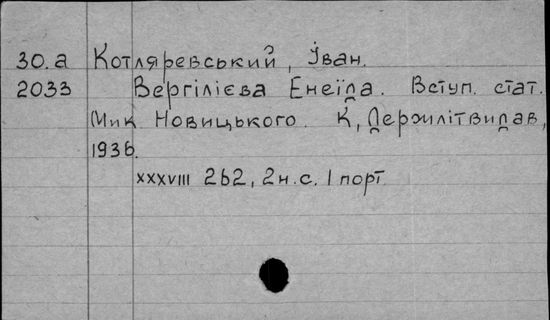 30.а Котляревський, Іван.
2033 Вергілієва Енеїда. Вступ. стат.
Мик Новицького. К, Держлітвидав,
1936.
XXXVIII 262, 2 н.с. 1 порт